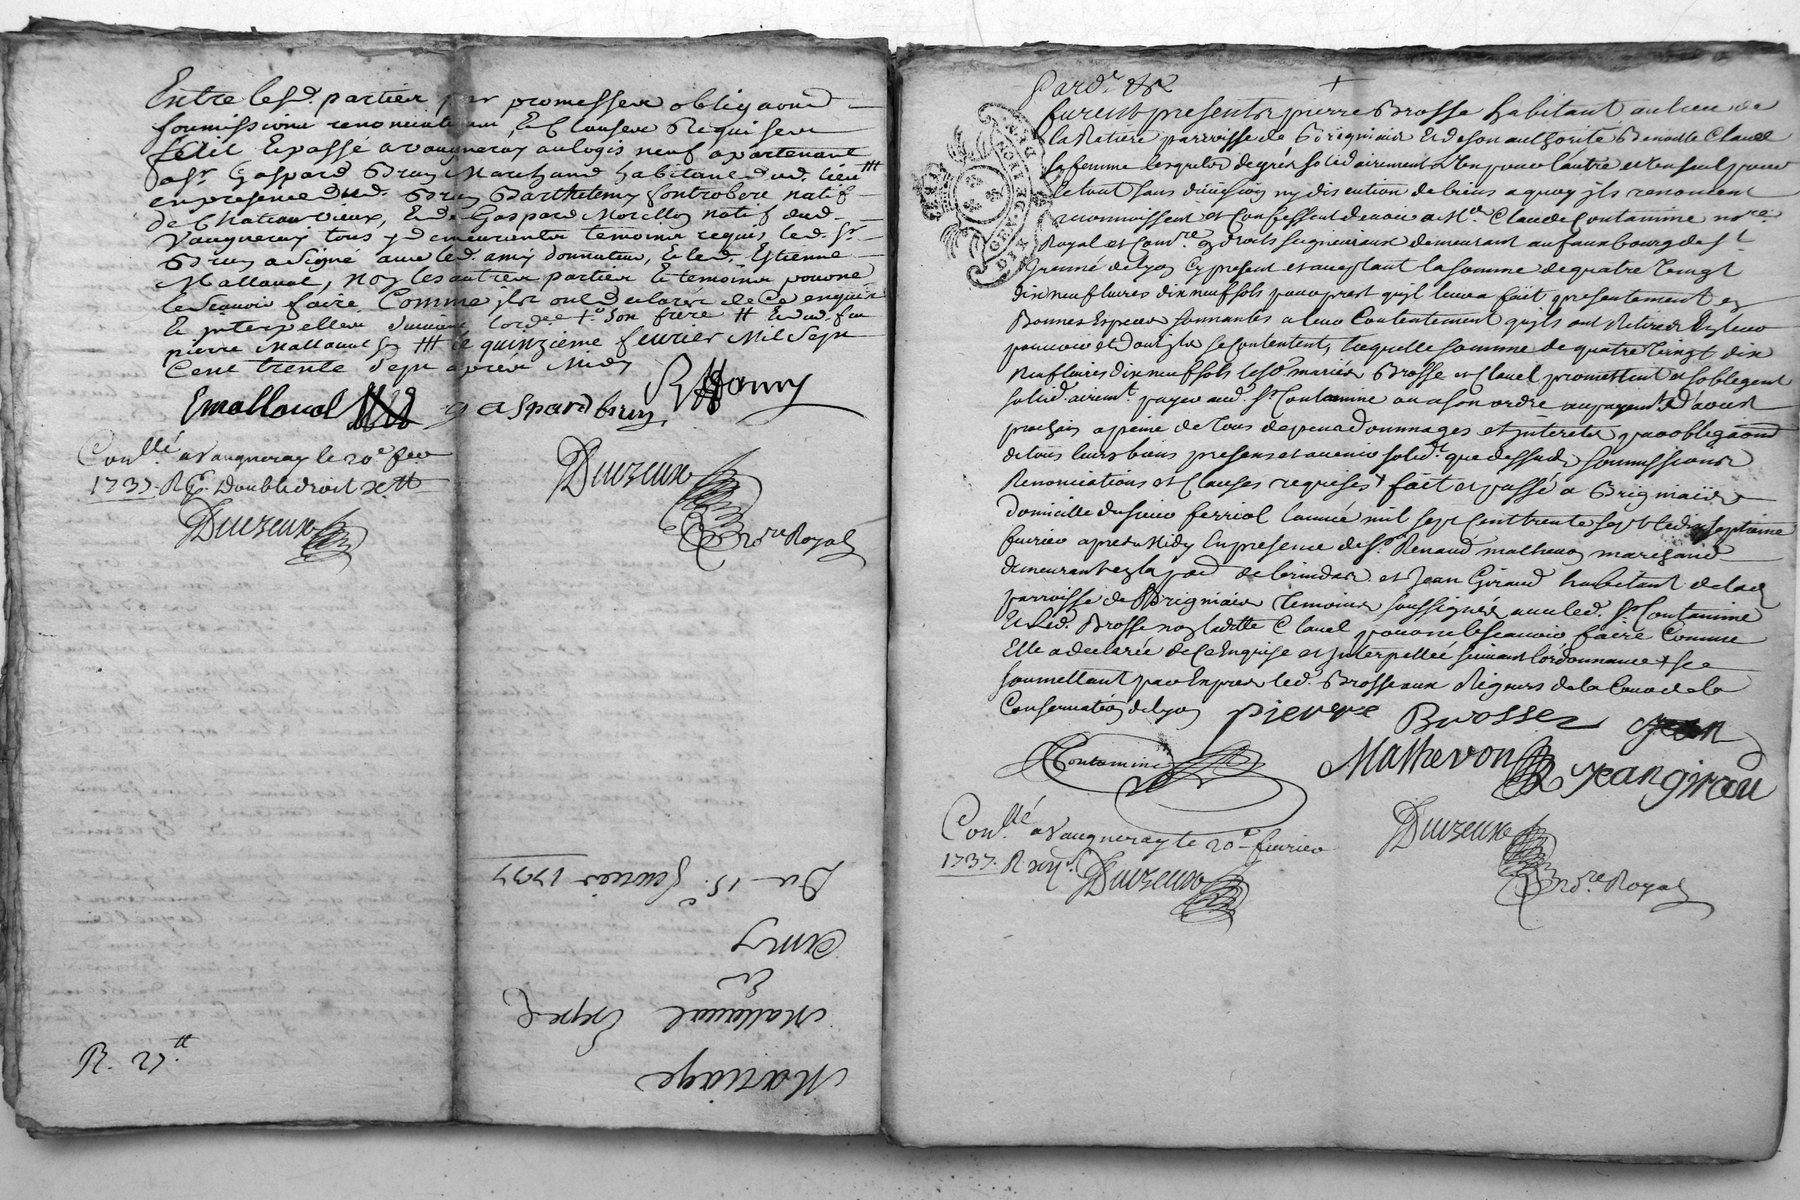 Entre lesd. parties par promesses obligaons
soumissions renonciations, & Clauses Requises
fait & passé a vaugneray au logis neuf apartenant
a sr. Gaspard Brun Marchand habitant dud. lieu ##
en presence dud. Brun Barthelemy natif
de Chatauvieux, & de Gaspard Morillon natif dud.
Vaugneray tous y demeurants temoins requis, led. sr.
Brun a signé avec led. amy donnateur, & led. Estienne
Mallaval, non les autres parties & temoins pour ne
le scavoir faire Comme ils ont declarer de ce enquis
& interpellés suivant lord.ce son frere # & dud. feu
pierre Mallaval ## le quinzieme fevrier Mil Sept
Cent trente Sept apres Midy
Emallaval gaspard brun
Conllé a Vaugneray le 20e. fev
1737. R Double droit
Duvzeux
Duvzeux
nore Royal
Mariage
Mallaval
&
amy
Du 15e. fevrier 1737
R. 25
Pardt.
+
furent presents pierre Brosse habitant au lieu de
la Ratiere parroisse de Brigniais & de son authorité Benoitte Clavel
sa femme lesquels de gres solidairement l'un pour l'autre et un seul pour
le tout sans division ny discution de biens a quoy ils renoncent
reconnoissent et Confessent devoir a Me. Claude Contamine nore.
Royal et Comre. en droits seigneuriaux demeurant au fauxbourg de St.
Irenné de Lyon Cy present et acceptant la somme de quatre vingt
dix neuf livres dix neuf sols pour prest qu'il leur a fait presentement en
Bonnes Especes sonnantes a leur Contentement qu'ils ont Retirer
pouvoir et dont ils se contentent, laquelle somme de quatre vingt dix
neuf livres dix neuf sols lesd. mariés Brosse et Clavel promettent et soblegent
solidairemt. payer aud. Sr. Contamine ou a son ordre au payemt. d'aoust
prochain a peine de tous depens dommages et interets par obligaons
de tous leurs biens presens et avenir solid. que dessus soumissions
Renonciations et Clauses requises + fait et passé a Brigniais
domicille du sieur ferriol l'année mil sept cent trente sept le dix septieme
fevrier apres Midy En presence de Sr. Renaud mathevon marchand
demeurant en la par de brindas et Jean Giraud habitant de lad
parroisse de Brigniais temoins soussignés avec led. Sr Contamine
& led. Brosse non laditte Clavel pour ne le scavoir faire Comme
Elle a declarée de ce Enquise et interpellée suivant l'ordonnance + se
soumettant par Exprès led. Brosse aux Rigeurs de la Cour de la
Conservation de Lyon
pierre Brosse Jean
Contamine Mathevon Jean girau
Conllé a Vaugneray le 20e fevrier
1737. R
Duvzeux
Duvzeux
nore. Royal
GEN. DE LION
DIX DEN.